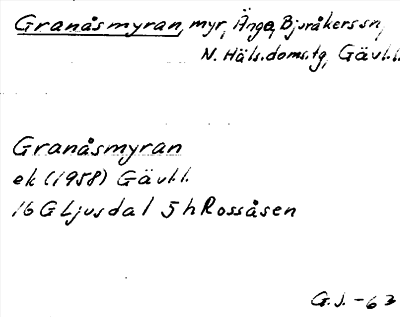 Granåsmyran, myr, Änga, Bjuråkers sn,
N. Häls. doms. tg, Gävl.l.
Granåsmyran
ek (1958) Gävl.l.
16G Ljusdal 5h Rossåsen
G.J. -63